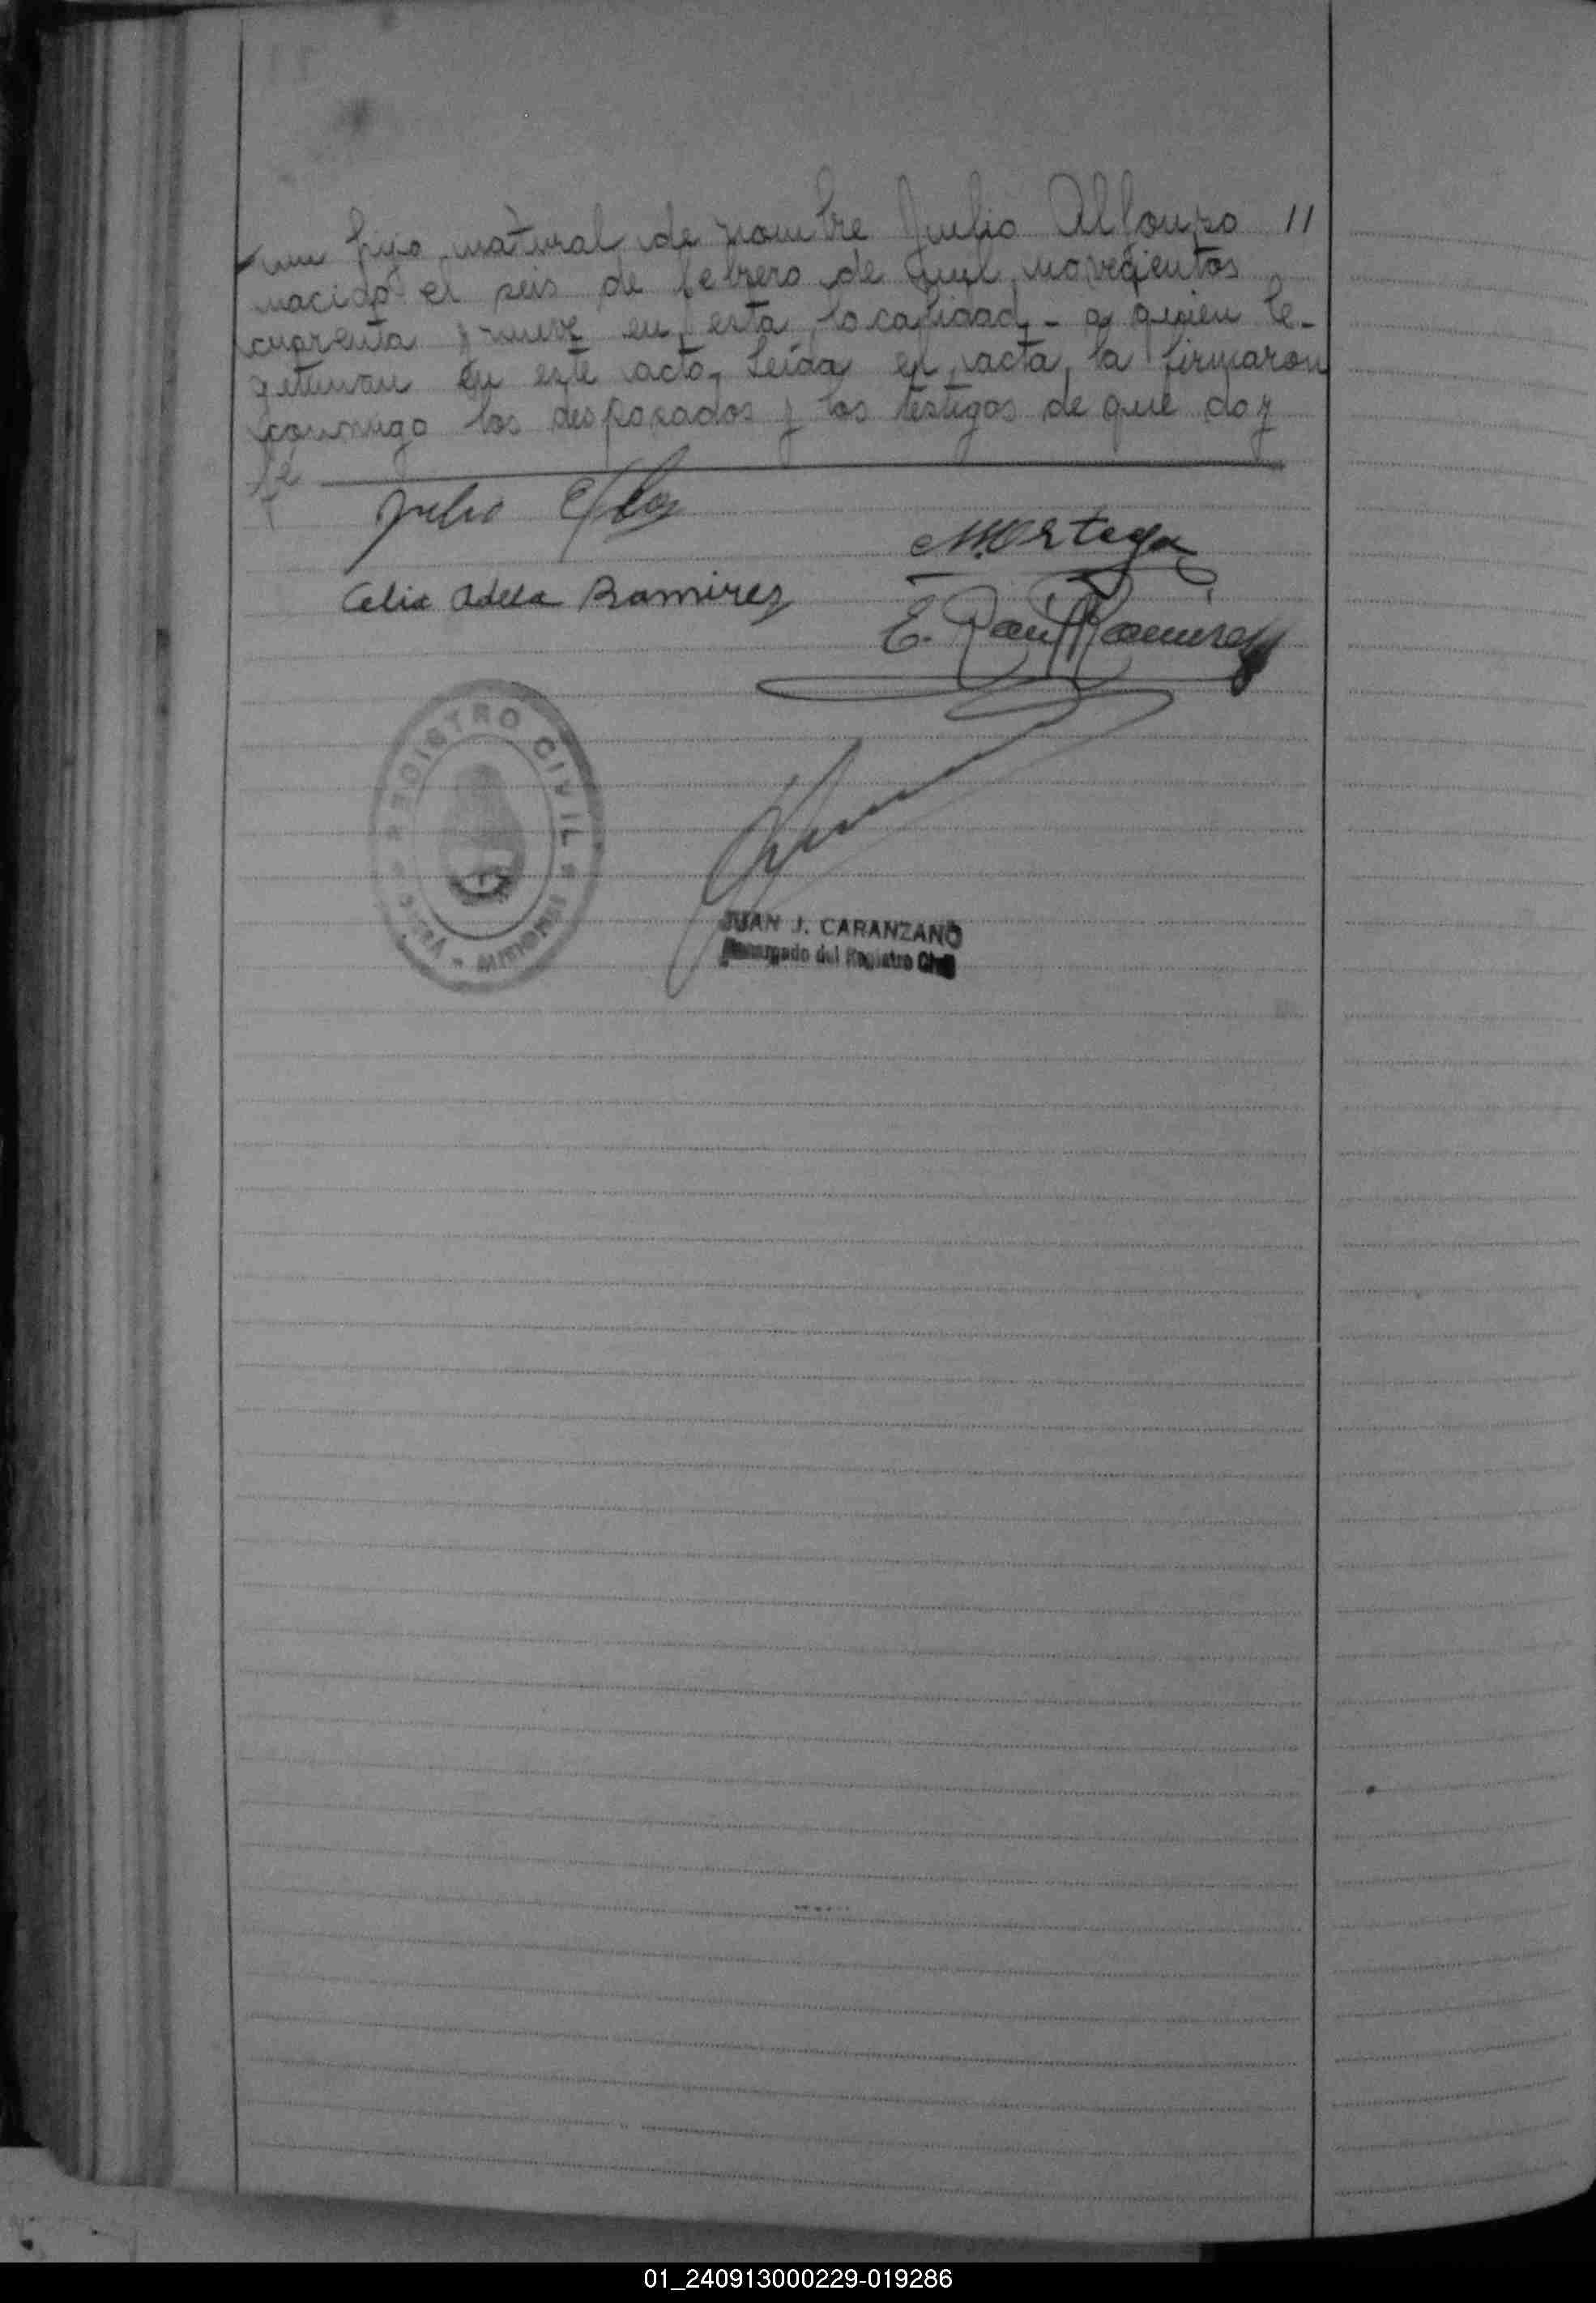 un hijo natural de nombre Julio Alfonso 11
nacido el seis de febrero de mil novecientos
cuarenta y nueve en esta localidad, - a quien le-
gitiman en este acto, Leída el acta, la firmaron
conmigo los desposados y los testigos de que doy
fé
Julio
M. Ortega
Celia Adela Ramirez
E. Raúl Ramirez
REGISTRO CIVIL
MISIONES
JUAN J. CARANZANO
Encargado del Registro Civil
01_240913000229-019286